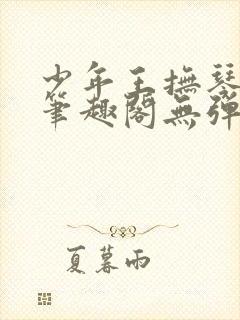 少年王撫琴
筆趣閣無彈
夏暮雨